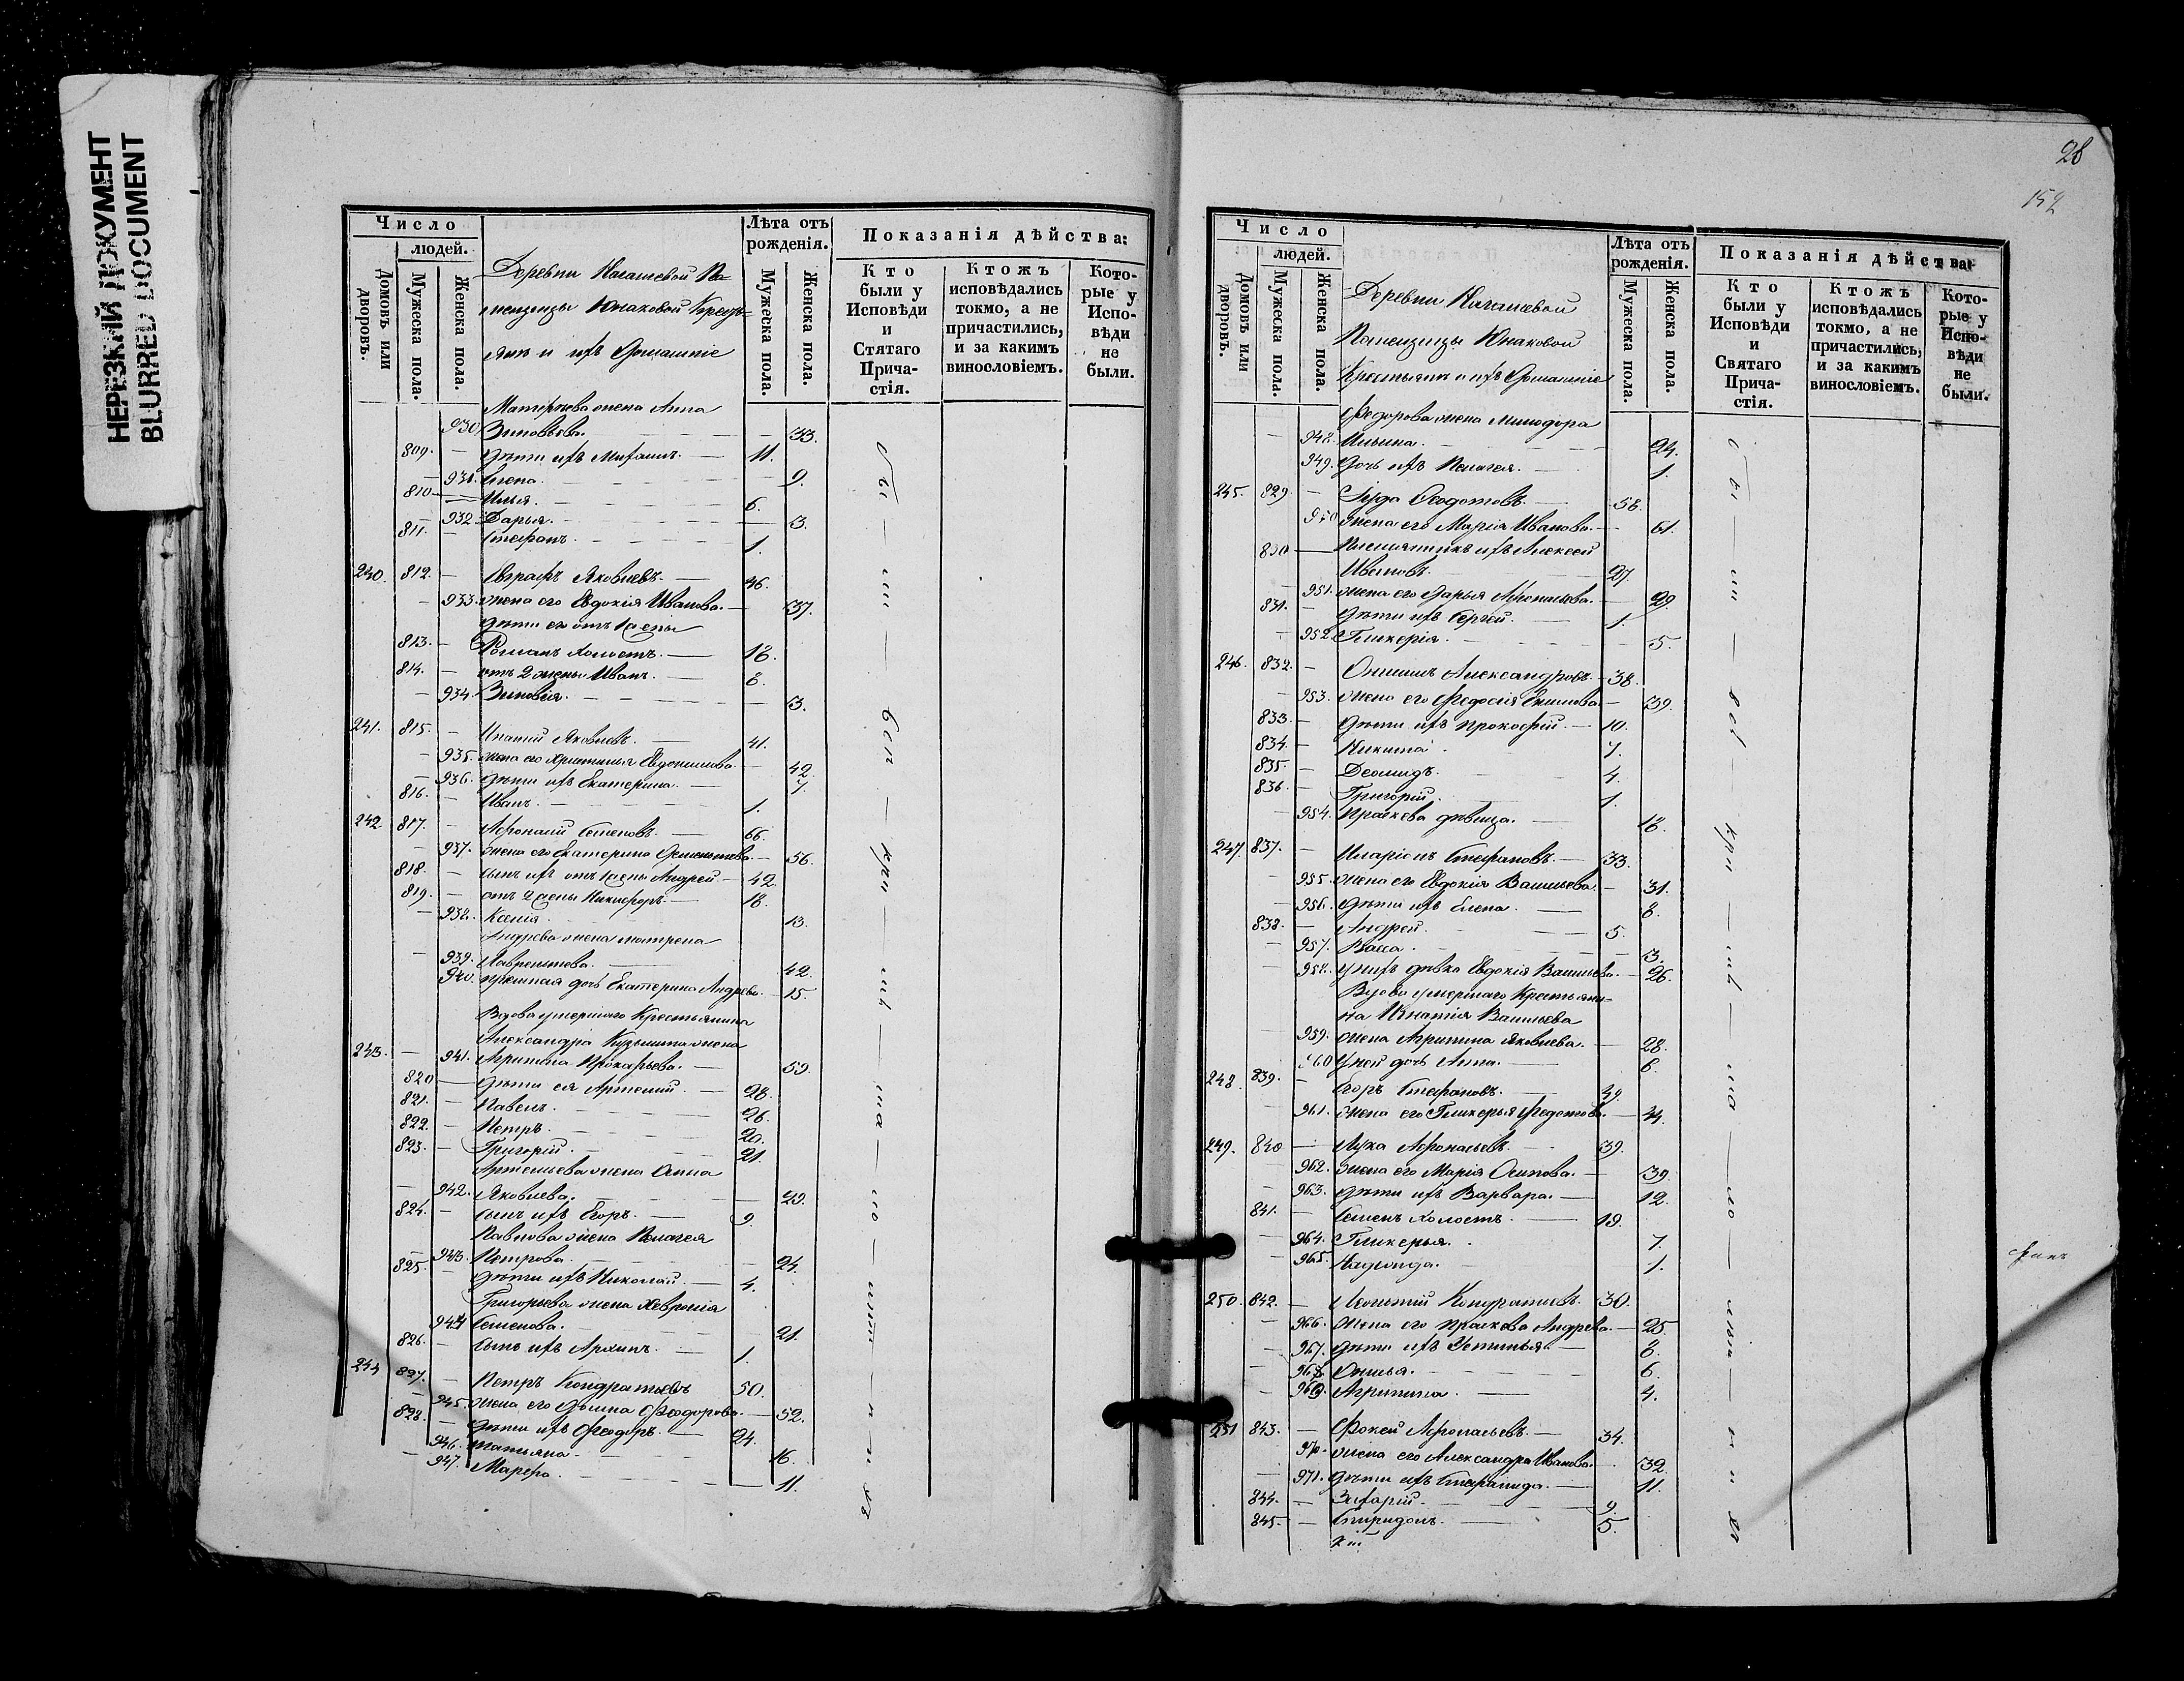 НЕРЕЗКИЙ ДОКУМЕНТ
BLURRED DOCUMENT
Число
людей.
Домовъ или дворовъ.
Мужеска пола.
Женска пола.
Деревни
Юнаковой
и ихъ Домашніе
Лѣта отъ рожденія.
Мужеска пола.
Женска пола.
Показанія дѣйства:
Кто были у Исповѣди и Стятаго Прича-стія.
Ктожъ исповѣдались токмо, а не причастились, и за какимъ винословіемъ.
Кото-рые у Испо-вѣди не были.
жена Анна
930 Зиновьева. 33.
809. дѣти ихъ 11.
931. Елена. 9.
810 Илья. 6.
932. Дарья. 3.
811. Стефанъ. 1.
240. 812. Евграфъ Яковлевъ. 46.
933. жена его Евдокія Иванова. 37.
дѣти его отъ 1 жены
813. Романъ холостъ. 18.
814. отъ 2 жены Иванъ. 8.
934. Зиновія. 3.
241. 815. Ипатій Яковлевъ. 41.
935. жена его Христинья Евдокимова. 42.
936. дѣти ихъ Екатерина. 7.
816. Иванъ. 1.
242. 817. Афонасій Семеновъ. 66.
937. жена его Екатерина 56.
818. сынъ ихъ отъ 1 жены Андрей. 42.
819. отъ 2 жены Никифоръ. 18.
938. Ксенія. 13.
Андрева жена Матрена
939. Лаврентева. 42.
940. дочь Екатерина Андрева. 15.
Вдова умершаго Крестьянина
Александра Кузьмина жена
243. 941. Агрипина Прокофьева. 59.
820 дѣти ея Артемій. 28.
821. Павелъ. 26.
822. Петръ. 20.
823. Григорій. 21.
Артемьева жена Анна
942. Яковлева. 29.
824. сынъ ихъ Егоръ. 9.
Павлова жена Пелагея
943. Петрова. 24.
825. дѣти ихъ Николай. 4.
Григорьева жена Хевронія
944 Семенова. 21.
826. сынъ ихъ Архипъ. 1.
244 827. Петръ Кондратьевъ 50.
945. жена его Домна Феодорова. 52.
828. дѣти ихъ Феодоръ. 24.
946. Татьяна. 16.
947. Марфа. 11.
28
152
Число
людей.
Домовъ или дворовъ.
Мужеска пола.
Женска пола.
Деревни
Юнаковой
Крестьянъ и ихъ Домашніе
Лѣта отъ рожденія.
Мужеска пола.
Женска пола.
Показанія дѣйства:
Кто были у Исповѣди и Святаго Прича-стія.
Ктожъ исповѣдались токмо, а не причастились, и за какимъ винословіемъ.
Кото-рые у Испо-вѣди не были.
Федорова жена Минодора
948. Ильина. 24.
949. Дочь ихъ Пелагея. 1.
245. 829. Іуда Федотовъ. 58.
950 жена его Марія Иванова. 61.
830 Племянникъ ихъ Алексей
27.
951. жена его Дарья 29.
831. дѣти ихъ Сергей. 1.
952. Гликерія. 5.
246. 832. Онисимъ Александровъ. 38.
953. жена его Федосія 39.
833. дѣти ихъ Прокофій. 10.
834. Никита. 7.
835. Деомидъ. 4.
836. Григорій. 1.
954. Праскева дѣвица. 18.
247. 837. Иларіонъ Стефановъ. 33.
955. жена его Евдокія Васильева. 31.
956. дѣти ихъ Елена. 8.
838. Андрей. 5.
957. Васса. 3.
958. у нихъ дѣвка Евдокія Васильева. 26.
Вдова умершаго Крестьяни-
на Игнатія Васильева
959. жена Агрипина Яковлева. 28.
960 У ней дочь Анна. 6.
248. 839. Егоръ Стефановъ. 49.
961. жена его Гликерья Федотова. 44.
249. 840 Лука Афонасьевъ. 39.
962. жена его Марія Осипова. 39.
963. дѣти ихъ Варвара. 12.
841. Семенъ холостъ. 19.
964. Гликерья. 7.
965. 1.
250. 842. Леонтій Кондратьевъ. 30.
966. жена его Праскева Андрева. 25.
967. дѣти ихъ Устинья. 8.
968. 6.
969. Агрипина. 4.
251 843. Фокей Афонасьевъ. 34.
970. жена его Александра Иванова. 32.
971. дѣти ихъ Степанида. 11.
844. Захарій. 9.
845. Спиридонъ. 5.